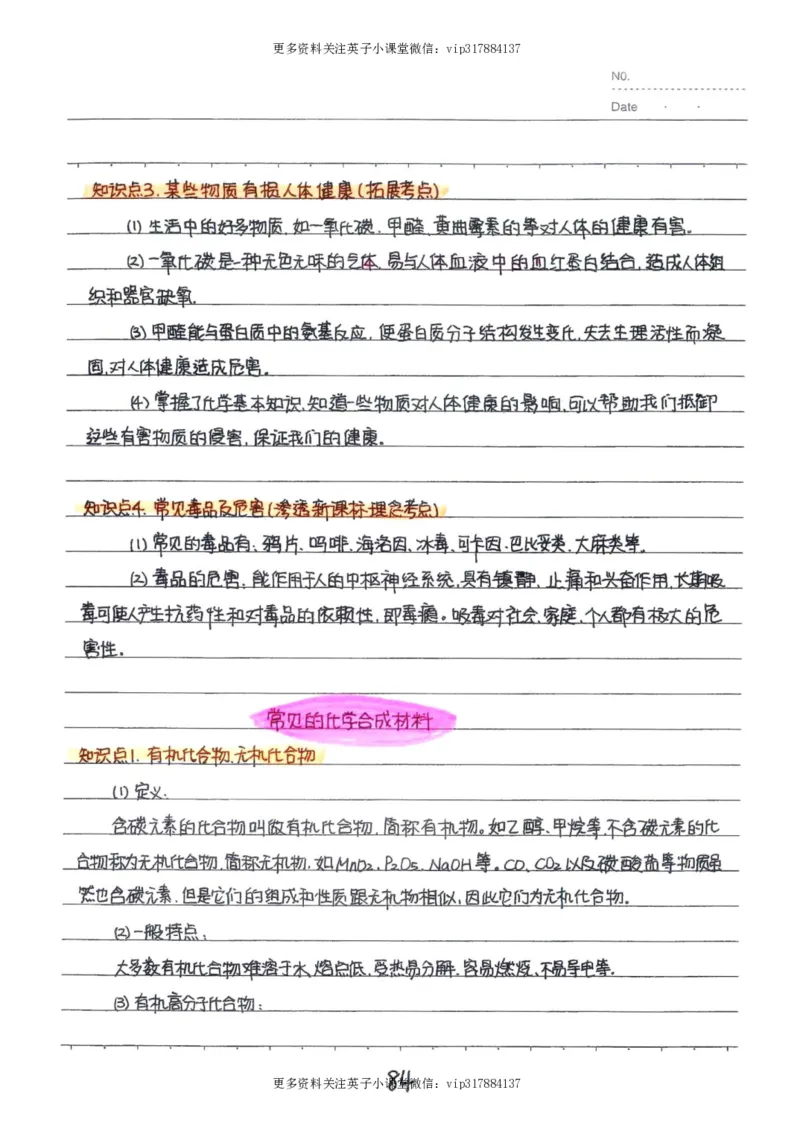 更多资料关注英子小课堂微信：vip317884137
NO.
Date · ·
知识点3.某些物质有损人体健康(拓展考点)
(1)生活中的好多物质,如一氧化碳、甲醛、黄曲霉素的等对人体的健康有害。
(2)一氧化碳是一种无色无味的气体,易与人体血液中的血红蛋白结合,造成人体组
织和器官缺氧.
(3)甲醛能与蛋白质中的氨基反应,使蛋白质分子结构发生变化,失去生理活性而凝
固,对人体健康造成危害。
(4)掌握了化学基本知识,知道一些物质对人体健康的影响,可以帮助我们抵御
这些有害物质的侵害,保证我们的健康。
知识点4.常见毒品及危害(渗透新课标理念考点)
(1)常见的毒品有:鸦片、吗啡、海洛因、冰毒、可卡因、巴比妥类、大麻类等.
(2)毒品的危害:能作用于人的中枢神经系统,具有镇静、止痛和兴奋作用,长期吸
毒可使人产生抗药性和对毒品的依赖性,即毒瘾。吸毒对社会、家庭、个人都有极大的危
害性.
常见的化学合成材料
知识点1.有机化合物、无机化合物
(1)定义.
含碳元素的化合物叫做有机化合物,简称有机物。如乙醇、甲烷等,不含碳元素的化
合物称为无机化合物,简称无机物,如MnO2、P2O5、NaOH等。CO、CO2以及碳酸盐等物质虽
然也含碳元素,但是它们的组成和性质跟无机物相似,因此它们为无机化合物.
(2)一般特点:
大多数有机化合物难溶于水,熔点低,受热易分解,容易燃烧、不易导电等.
(3)有机高分子化合物:
84
更多资料关注英子小课堂微信：vip317884137